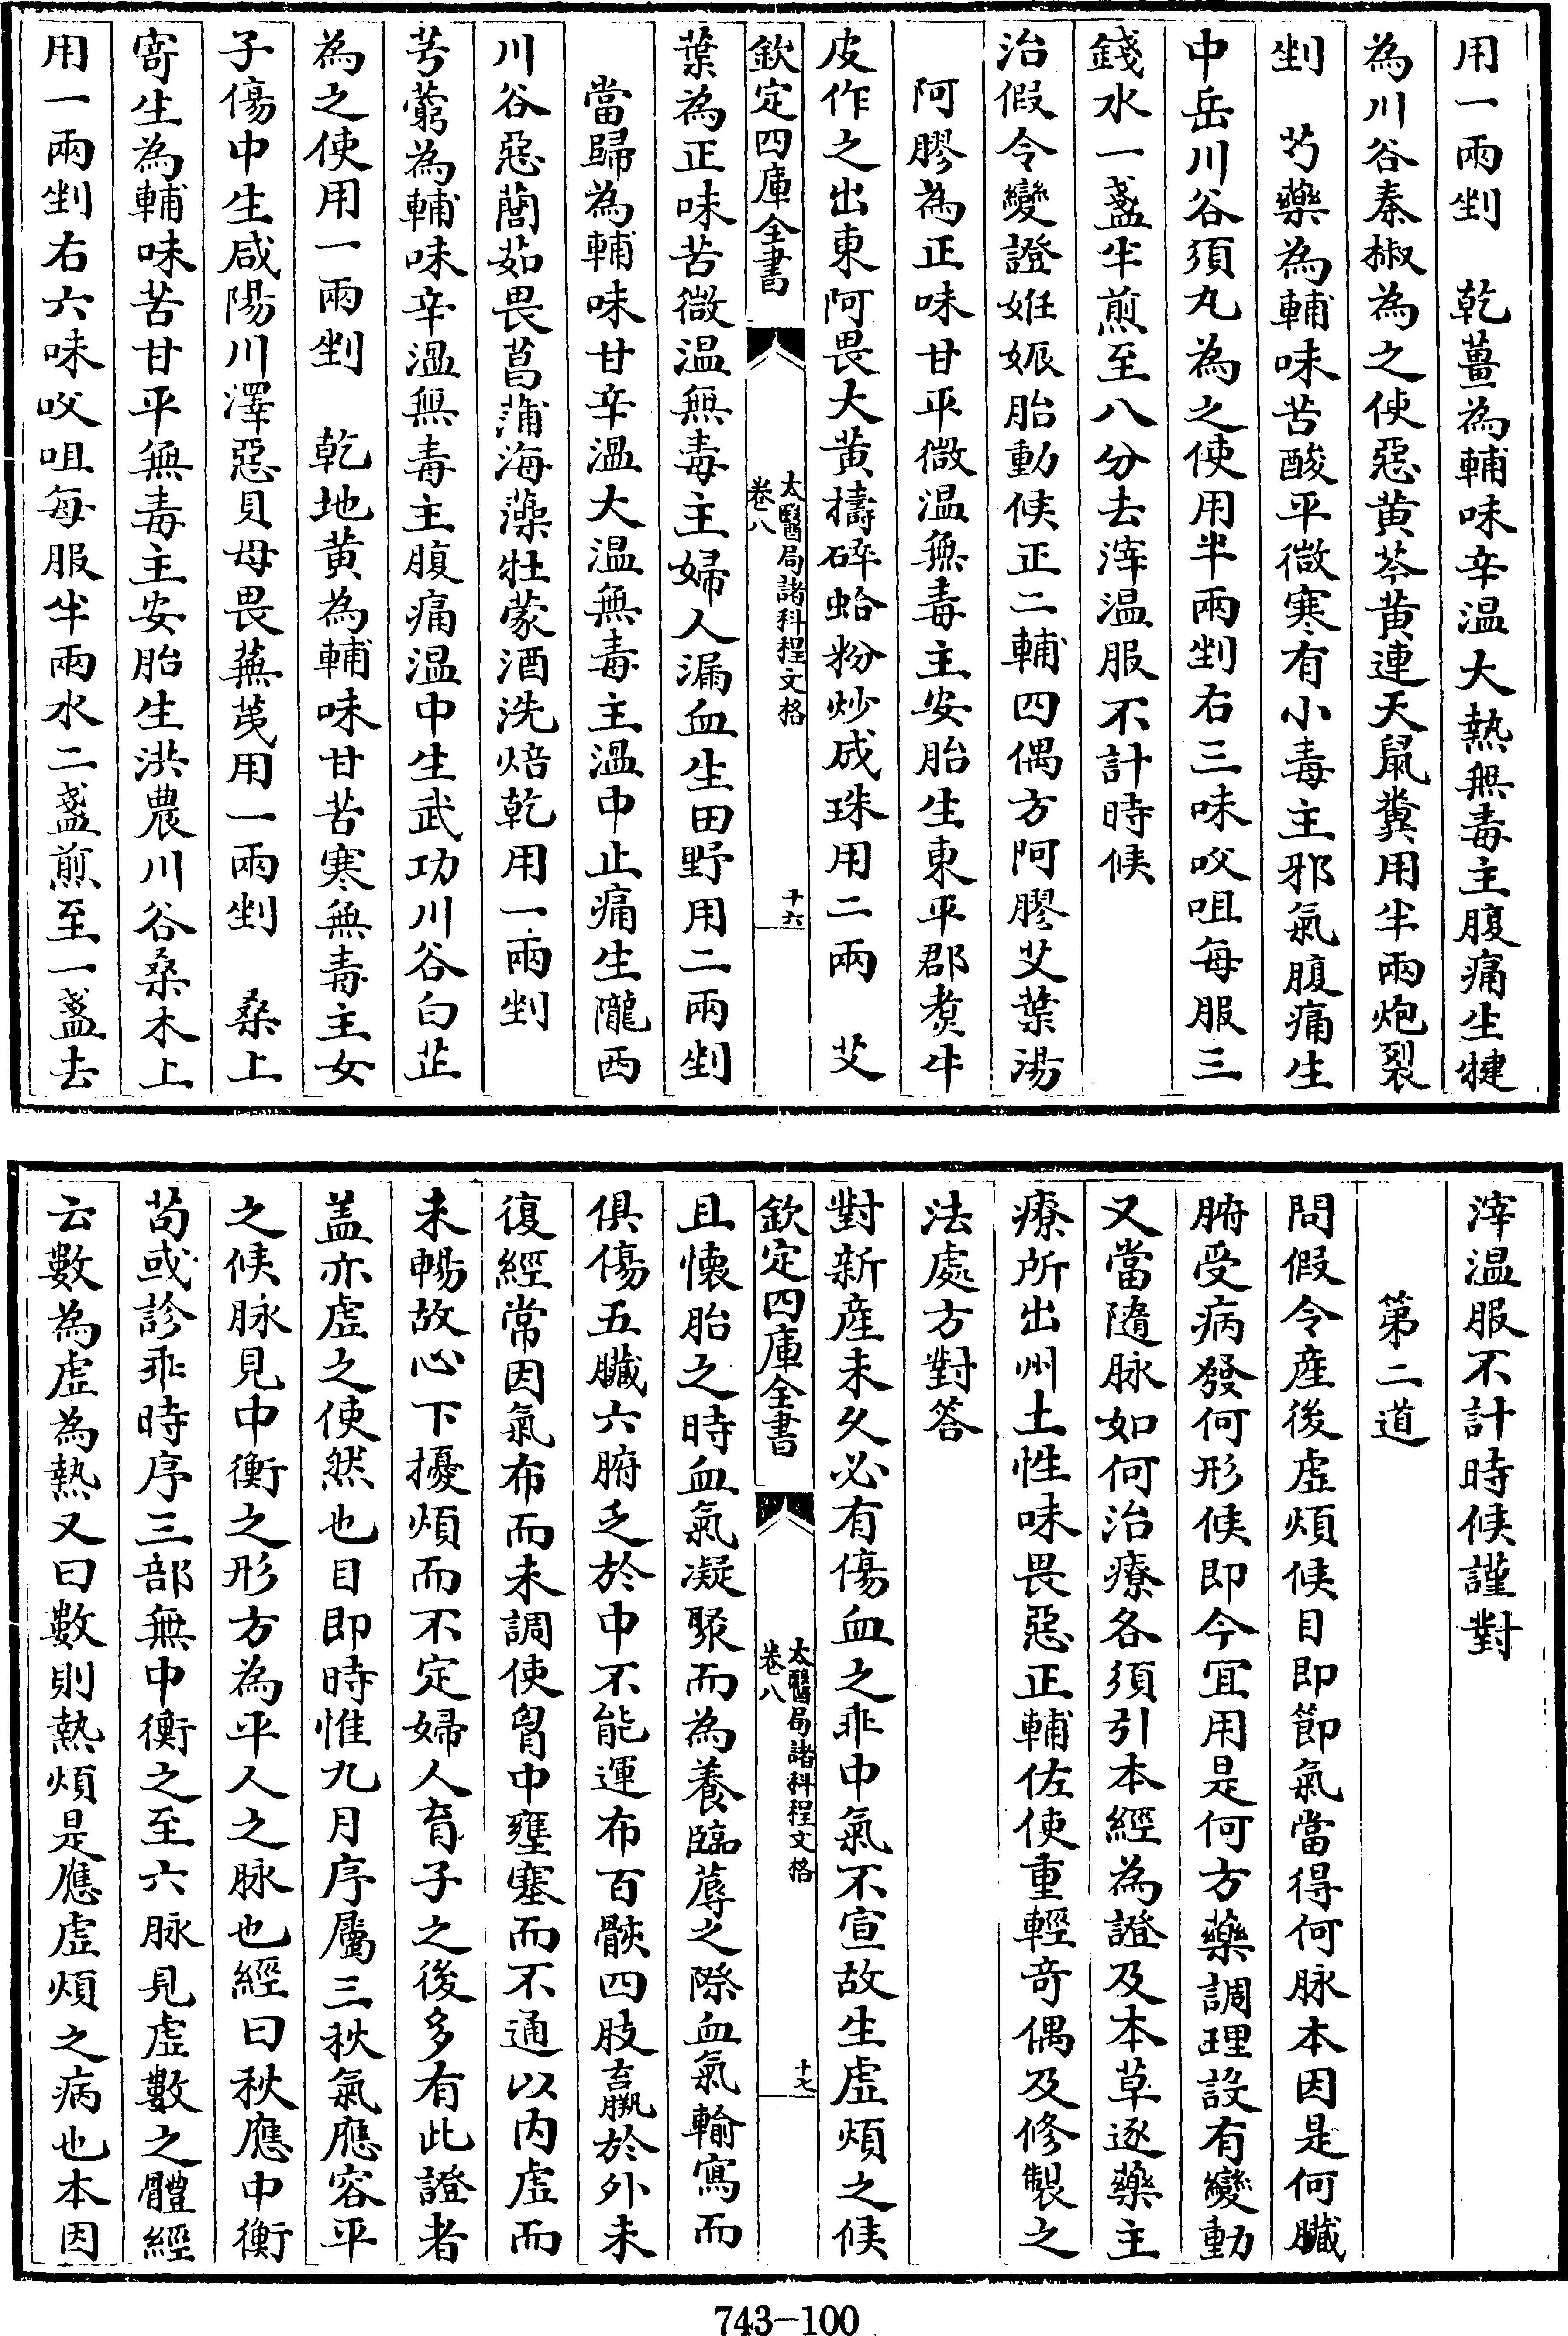 用一兩剉　乾薑為輔味辛温大熱無毒主腹痛生犍
為川谷秦椒為之使惡黄芩黄連天鼠糞用半兩炮裂
剉　芍藥為輔味苦酸平微寒有小毒主邪氣腹痛生
中岳川谷須丸為之使用半兩剉右三味㕮咀每服三
錢水一盞半煎至八分去滓温服不計時候
治假令變證姙娠胎動候正二輔四偶方阿膠艾葉湯
阿膠為正味甘平微温無毒主安胎生東平郡煑牛
皮作之出東阿畏大黄擣碎蛤粉炒成珠用二兩　艾
欽定四庫全書
太醫局諸科程文格
卷八
十六
葉為正味苦微温無毒主婦人漏血生田野用二兩剉
當歸為輔味甘辛温大温無毒主温中止痛生隴西
川谷惡䕡茹畏菖蒲海藻牡蒙酒洗焙乾用一兩剉
芎藭為輔味辛温無毒主腹痛温中生武功川谷白芷
為之使用一兩剉　乾地黄為輔味甘苦寒無毒主女
子傷中生咸陽川澤惡貝母畏蕪荑用一兩剉　桑上
寄生為輔味苦甘平無毒主安胎生洪農川谷桑木上
用一兩剉右六味㕮咀每服半兩水二盞煎至一盞去
滓温服不計時候謹對
第二道
問假令産後虚煩候目即節氣當得何脉本因是何臟
腑受病發何形候即今宜用是何方藥調理設有變動
又當隨脉如何治療各須引本經為證及本草逐藥主
療所出州土性味畏惡正輔佐使重輕奇偶及修製之
法處方對答
對新産未久必有傷血之非中氣不宣故生虚煩之候
欽定四庫全書
太醫局諸科程文格
卷八
十七
且懐胎之時血氣凝聚而為養臨蓐之際血氣輸寫而
俱傷五臟六腑乏於中不能運布百骸四肢羸於外未
復經常因氣布而未調使胷中壅塞而不通以内虚而
未暢故心下擾煩而不定婦人育子之後多有此證者
盖亦虚之使然也目即時惟九月序屬三秋氣應容平
之候脉見中衡之形方為平人之脉也經曰秋應中衡
苟或診乖時序三部無中衡之至六脉見虚數之體經
云數為虚為熱又曰數則熱煩是應虚煩之病也本因
743-100